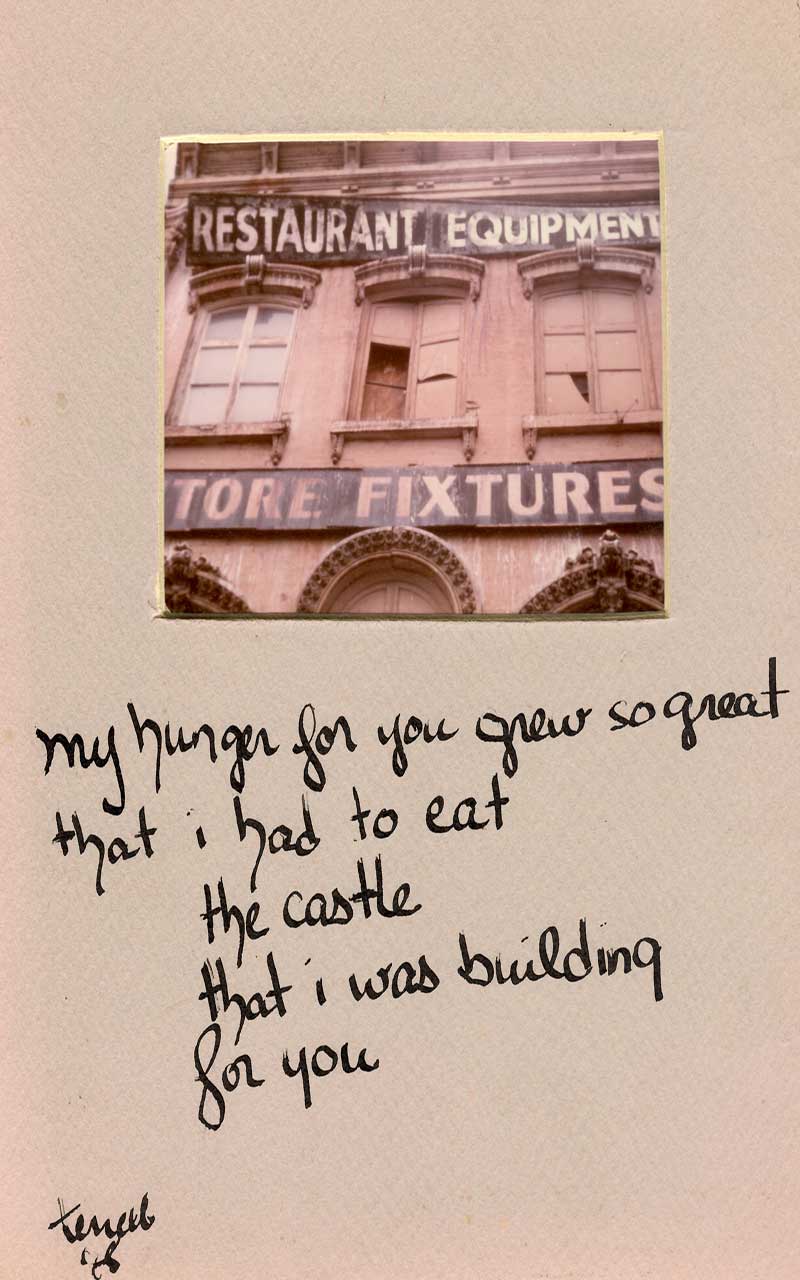 RESTAURANT EQUIPMENT
TORE FIXTURES
my hunger for you grew so great
that i had to eat
the castle
that i was building
for you